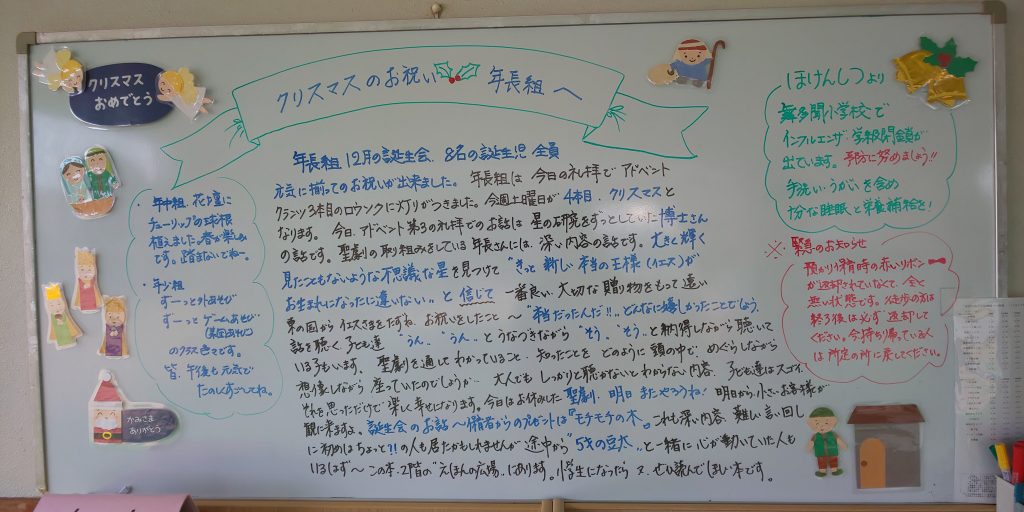 クリスマス
おめでとう
クリスマスのお祝い 年長組へ
年長組 12月の誕生会、8名の誕生児 全員
元気に揃ってのお祝いが出来ました。年長組は 今日の礼拝で アドベント
クランツ3本目のロウソクに灯りがつきました。今週土曜日が4本目、クリスマスと
なります。今日、アドベント第3の礼拝でのお話は 星の研究をずっとしていた博士さん
の話です。聖劇の取り組みをしている年長さんには、深い内容の話です。大きく輝く
見たこともないような不思議な星を見つけて"きっと 新しい本当の王様(イエス)が
お生まれになったに違いない。"と 信じて 一番良い、大切な贈り物をもって遠い
東の国から イエスさまをたずね、お祝いをしたこと〜"本当だったんだ!!、どんなに嬉しかったことでしょう。
話を聴く子ども達 "うん、うん"とうなづきながら"そう、そう"と納得しながら聴いて
いる子もいます。聖劇を通してわかっていること、知ったことを どのように頭の中で、めぐらしながら
想像しながら 座っていたのでしょうか…大人でもしっかりと聴かないとわからない内容、子ども達はスゴイ
それを思っただけで楽しく幸せになります。今日はお休みした聖劇、明日 またやろうね!明日から、小さいお客様が
観に来ますよ。誕生会のお話〜 からのプレゼントは『モチモチの木』これも深い内容、難しい言い回し
に初めはちょっと?!の人も居たかもしれませんが 途中から"5才の豆太"と一緒に心が動いていた人も
いるはず〜 この本、2階の"えほんの広場"にあります。小学生になったら 又、ぜひ読んでほしい本です。
・年中組、花壇に
チューリップの球根
植えました。春が楽しみ
です。踏まないでね〜。
・年少組
ずーっと外あそび
ずーっと ゲームあそび
(集団あそび)
のクラス色々です。
皆、午後も元気で
たのしくすごしてね。
かみさま
ありがとう
ほけんしつより
舞多聞小学校で
インフルエンザ 学級閉鎖が
出ています。予防に努めましょう!!
手洗い・うがいを含め
十分な睡眠と栄養補給を!
※ のお知らせ
預かり保育時の赤いリボン
が返却されていなくて、全く
無い状態です。 徒歩の方は
終了後は必ず 返却して
ください。今持ち帰っている人
は 所定の所に戻してください。